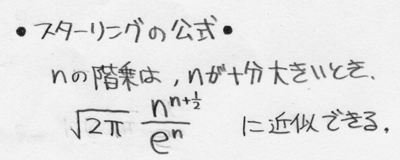 •スターリングの公式•
nの階乗は,nが十分大きいとき、
√2π n^{n+1/2}/e^n に近似できる。